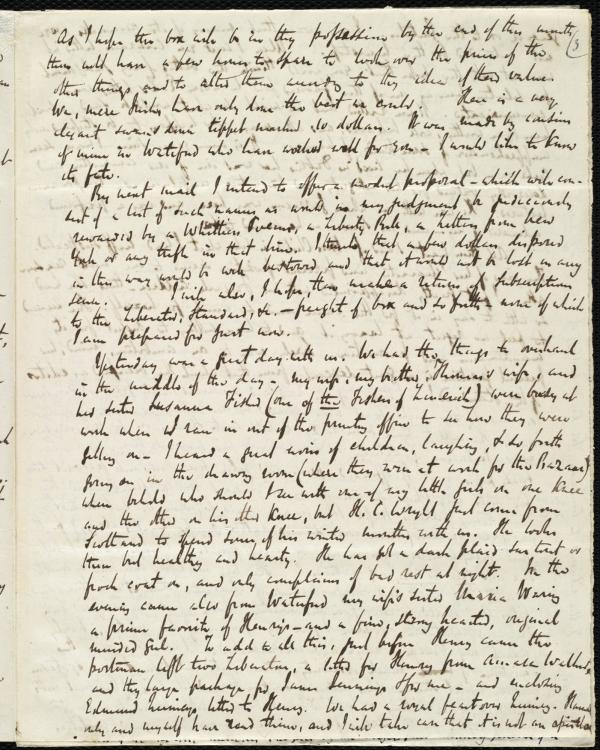 As I hope this box will be in thy possession by the end of this month,
thou wilt have a few hours to spare to look over the prices of the (3
other things, and to alter them according to thy idea of their value.
We, mere Irish, have only done the best we could. There is a very
elegant swan's down tippet marked 10 dollars. It was made by cousins
of mine in Waterford who have worked well for you - I would like to know
its fate.
By next mail I intend to offer a modest proposal - which will con-
sist of a list of such names as would in my judgment be judiciously
rewarded by a Whittier's Poems, a Liberty Bell, a Letters from New
York or any thing in that line. I think that a few dollars disposed
in this way would be well bestowed, and that it would not be lost in any
sense. I will also, I hope, then make a return of subscriptions
to the Liberator, Standard, &c. - freight of box and so forth - none of which
I am prepared for just now.
Yesterday was a great day with us. We had the things to overhaul
in the middle of the day - my wife, my brother Thomas's wife, and
her sister Susanna Fisher (one of the Fishers of Limerick) were busy at
work when I ran in out of the printing office to see how they were
getting on - I heard a great noise of children, laughing, & so forth
going on in the drawing room (where they were at work for the Bazaar)
when behold who should I see with one of my little girls on one knee
and the other on his other knee, but H. C. Wright just come from
Scotland to spend some of his winter months with us. He looks
thin but healthy and hearty. He has got a dark plaid surtout or
frock coat on, and only complains of bad rest at night. In the
evening came also from Waterford my wife's sister Maria Waring
a prime favorite of Henry's - and a fine, strong hearted, original
minded girl. To add to all this, just before Henry came the
postman left two Liberators, a letter for Henry from Amasa Walker,
and thy large package for James Jennings & for me - and enclosing
Edmund Quincy's letter to Henry. We had a royal feast over Quincy.
only and myself have read thine, and I will take care that it is not an